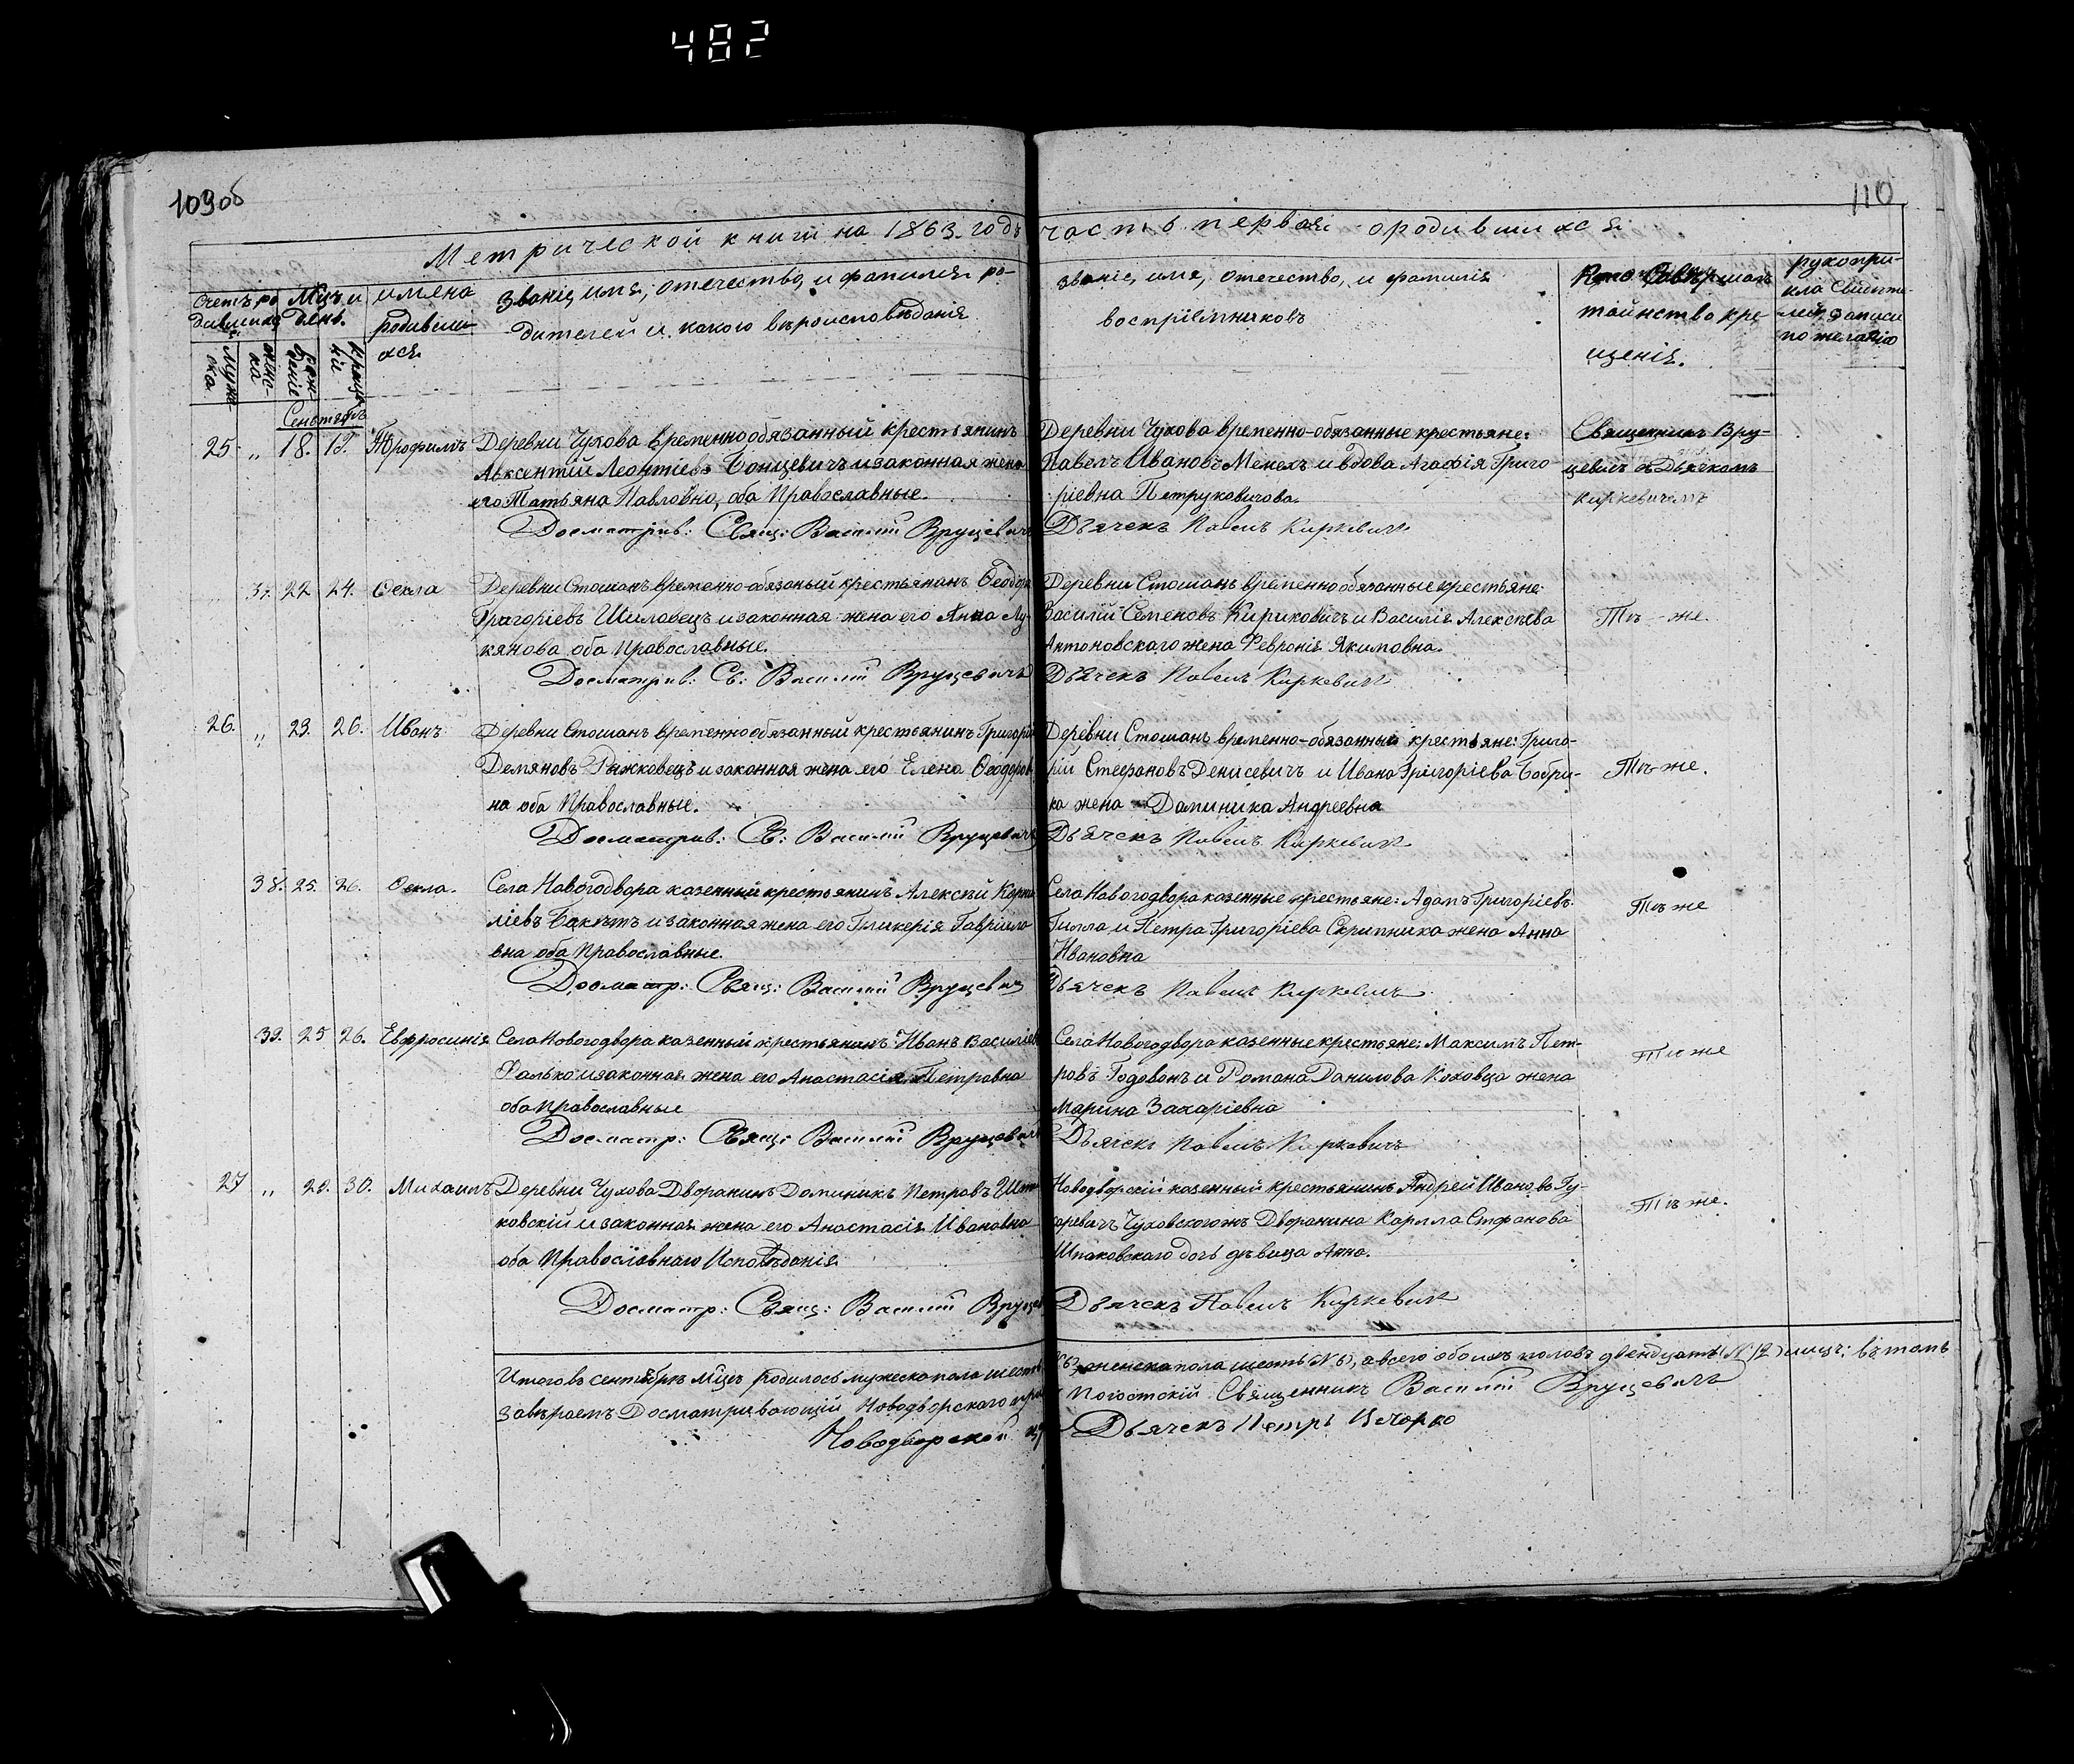 482
109об
110
Метрической книги на 1863. годъ часть первая о родившихся
Счетъ ро
дившихся
Мцъ и
день.
имена
родивши
хся.
Званіе, имя, отечество, и фамилия ро-
дителей и какого вѣроисповѣданія.
званіе, имя, отечество, и фамилія
воспріемниковъ
Кто Совершалъ
таинство кре
щенія.
рукопри-
кла Свидѣте-
лей записи
по желанію
Муже-
ска
женс-
ка
рож-
деніе
креще-
ній
Сентябрь
25 " 18. 19. Трофимъ Деревни Чухова временнообязанный крестьянинъ
Авксентій Леонтіевъ Бонцевичъ и законная жена
его Татьяна Павловна, оба Православные.
Досматрив: Свящ: Василій Вруцевичъ
Деревни Чухова временно-обязанные крестьяне:
Павелъ Ивановъ Менехъ и вдова Агафія Григо
ріевна Петруковичова.
Дьячекъ Павелъ Киркевичъ
Священникъ Вру-
цевичъ съ Дьячкомъ
Киркевичемъ
37. 22 24. Ѳекла Деревни Стошанъ временно-обязаный крестьянинъ Ѳеодоръ
Григоріевъ Шиловецъ и законная жена его Анна Лу-
кянова оба Православные.
Досматрив: Св: Василій Вруцевичъ
Деревни Стошанъ временнообязанные крестьяне:
Василій Семеновъ Кириковичъ и Василія Алексѣева
Антоновского жена Февронія Якимовна.
Дьячекъ Павелъ Киркевичъ
Тѣ-же.
26. " 23. 26. Иванъ Деревни Стошанъ временнообязанный крестьянинъ Григорій
Демяновъ Рыжковецъ и законная жена его Елена Ѳеодоров
на оба Православные.
Досматрив: Св: Василій Вруцевичъ
Деревни Стошанъ временно-обязанный крестьяне: Григо-
рій Стефановъ Денисевичъ и Ивана Григоріева Бобри-
ка жена Доминика Андреевна
Дьячекъ Павелъ Киркевичъ
Тѣ же.
38. 25. 26. Ѳекла. Села Новогодвора казенный крестьянинъ Алексѣй Корни
ліевъ Бакутъ и законная жена его Гликерія Гавриило
вна оба Православные.
Досматр: Свящ: Василій Вруцевичъ
Села Новогодвора казенные крестьяне: Адамъ Григоріевъ
Гилла и Петра Григоріева Скрипника жена Анна
Ивановна
Дьячекъ Павелъ Киркевичъ
Тѣ же
39. 25 26. Евфросинія Села Новогодвора казенный крестьянинъ Иванъ Василіев
Фалько и законная жена его Анастасія Петровна
оба Православные
Досматр: Свящ: Василій Вруцевичъ
Села Новогодвора казенные крестьяне: Максимъ Пет-
ровъ Годовонъ и Романа Данилова Коховца жена
Марина Захаріевна
Дьячекъ Павелъ Киркевичъ
Тѣ же
27 " 28. 30. Михаилъ Деревни Чухова Дворанинъ Доминикъ Петровъ Шпа
ковскій и законная жена его Анастасія Ивановна
оба Православнаго Исповѣданія.
Досматр: Свящ: Василій Вруцев
Новодворскій казенный крестьянинъ Андрей Ивановъ Гу-
каревичъ Чуховского жъ Дворанина Карпла Стфанова
Шпаковскаго дочь дѣвица Анна.
Дьячекъ Павелъ Киркевичъ
Тѣ же.
Итого въ сентябрѣ мцѣ родилось мужеска пола шесть
женска пола шесть (№ 6), а всего обоихъ половъ двенцать (№ 12) лицъ: въ томъ
Завѣраемъ Досматривающій Новодворского при
Погостскій Священникъ Василій Вруцевичъ
Новодворской
Дьячекъ Петръ